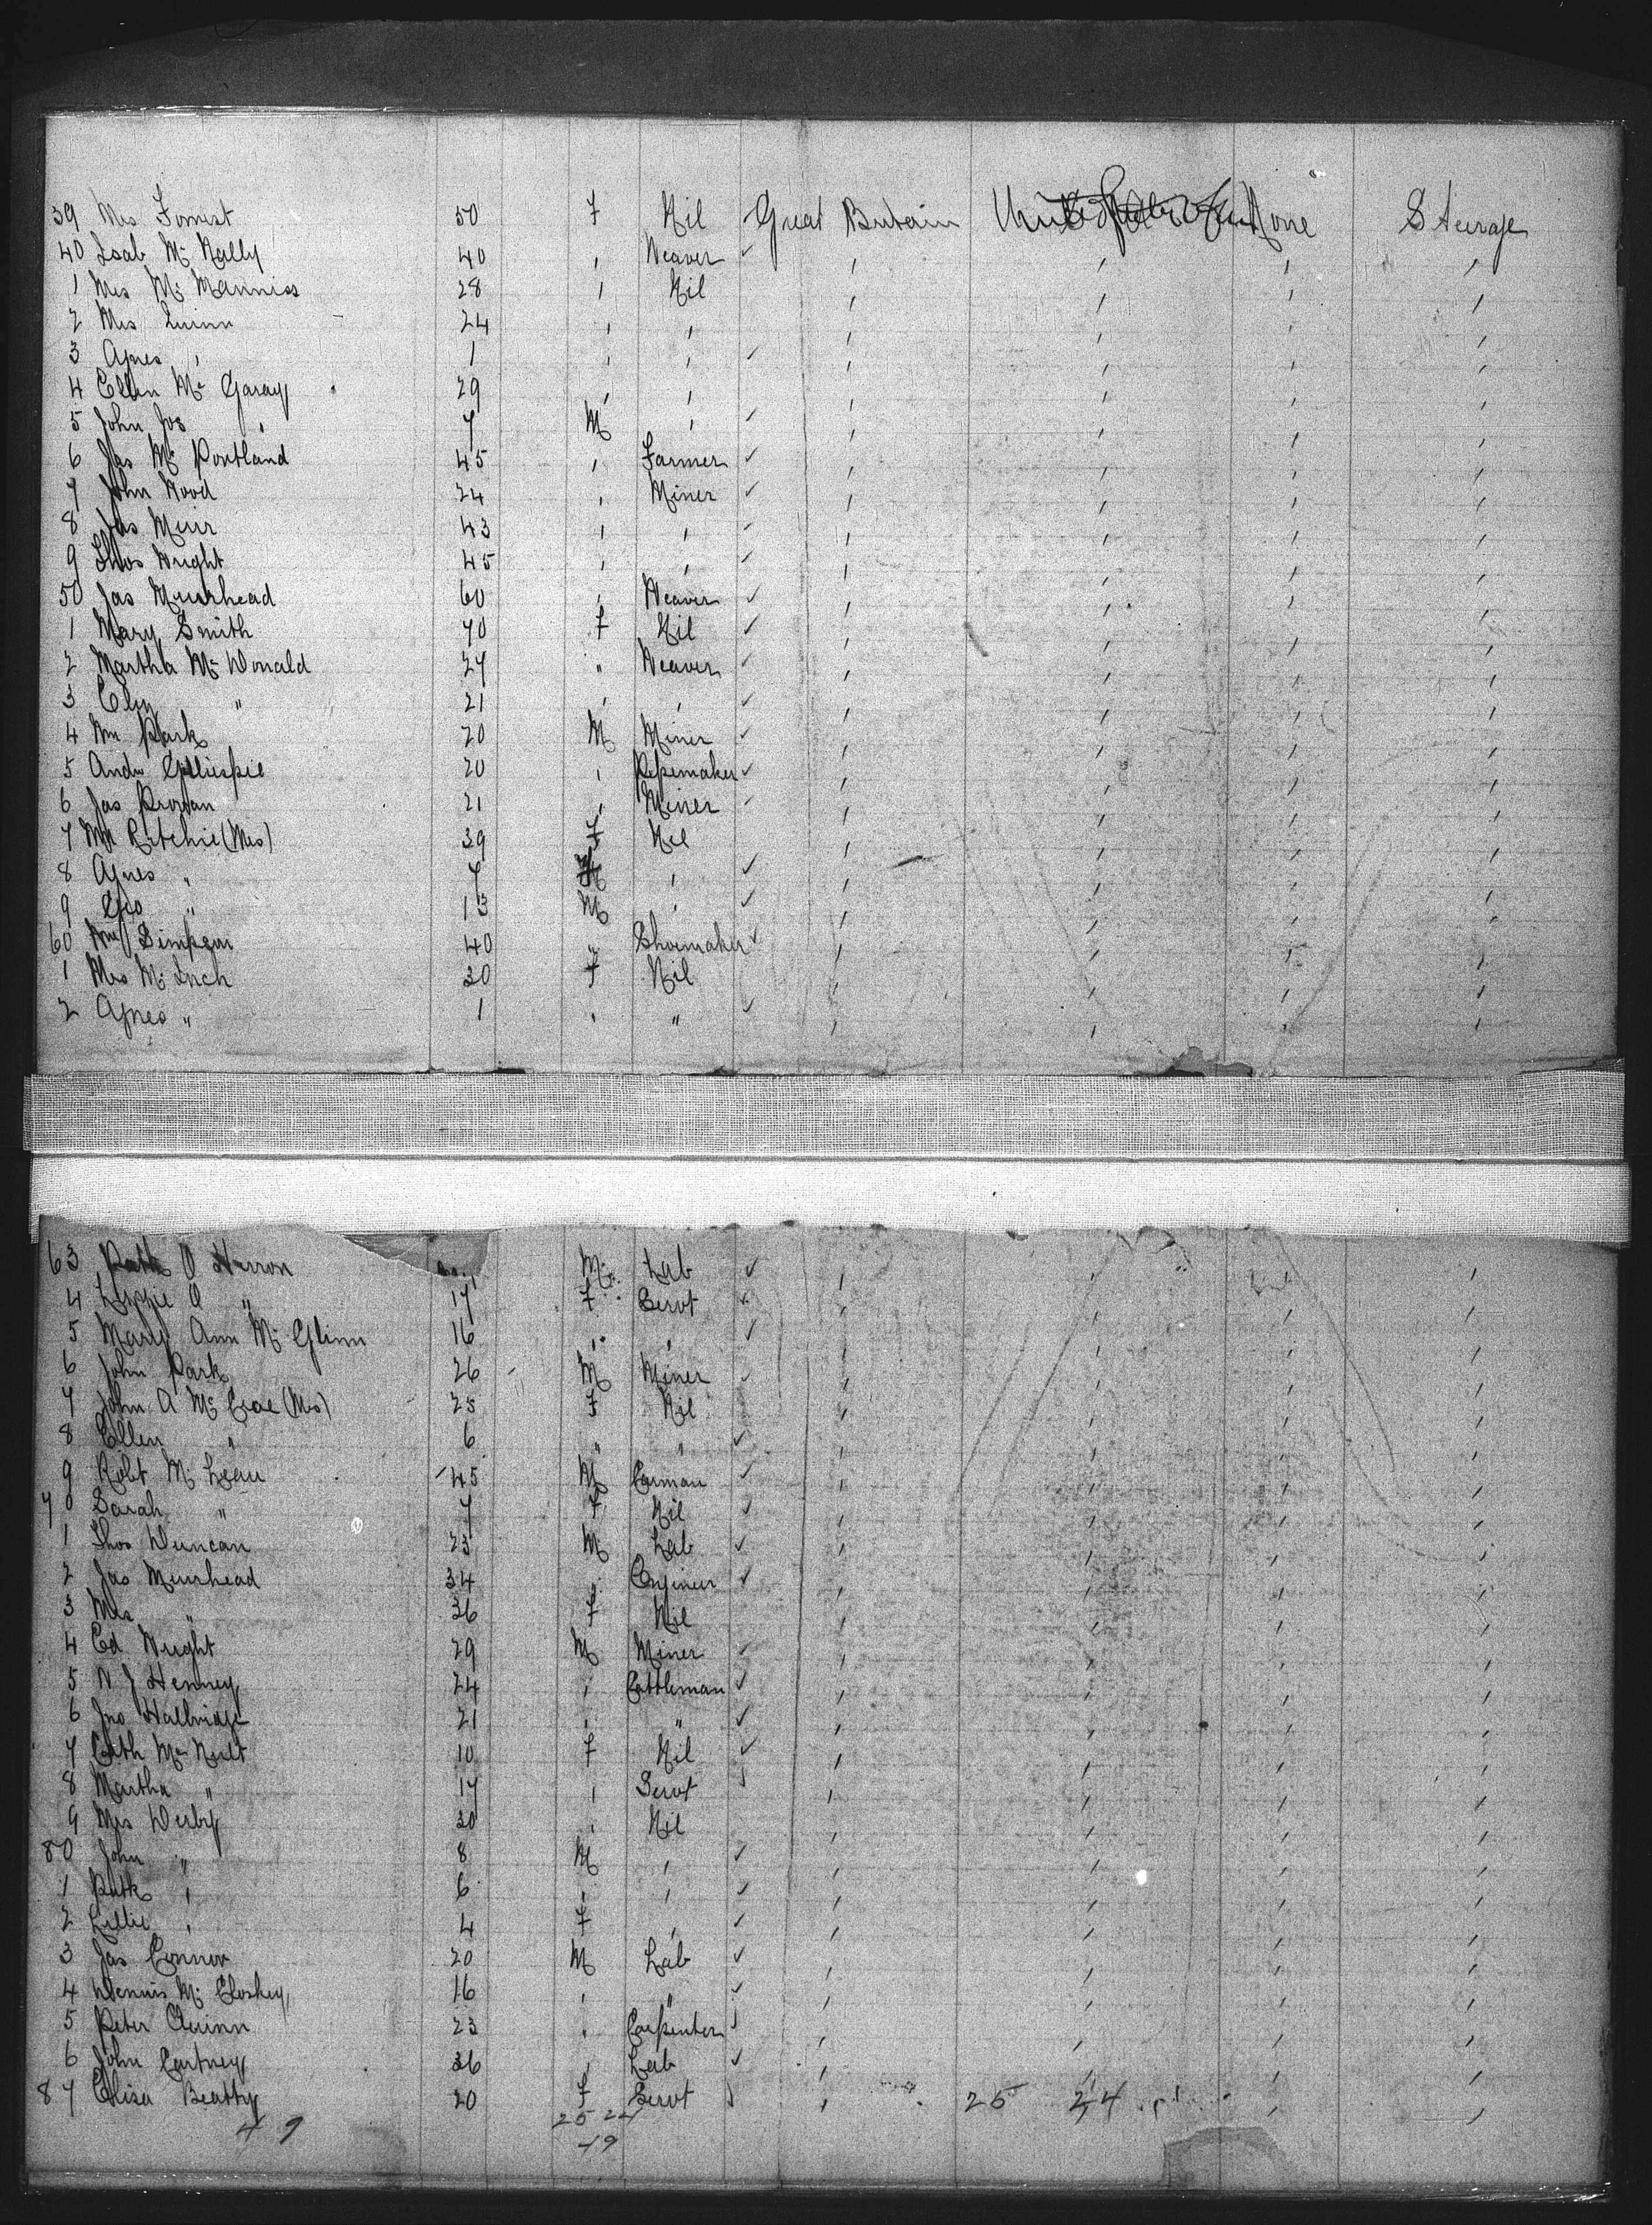 39 Mrs Forrest 50 F Nil Great Britain United States None Steerage
40 Isab Mc Nally 40 , Weaver ✓ , , , ,
1 Mrs Mc Manniss 28 , Nil , , , ,
2 Mrs Quinn 24 , , , , , ,
3 Agnes , 1 , , ✓ , , , ,
4 Ellen Mc Garay 29 , , , , , ,
5 John Jos , 7 M , ✓ , , , ,
6 Jas Mc Pontland 45 , Farmer ✓ , , , ,
7 John Wood 24 , Miner ✓ , , , ,
8 Jas Muir 43 , , ✓ , , , ,
9 Thos Wright 45 , , ✓ , , , ,
50 Jas Muirhead 60 , Weaver ✓ , , , ,
1 Mary Smith 70 F Nil ✓ , , , ,
2 Martha Mc Donald 27 " Weaver ✓ , , , ,
3 " 21 , , ✓ , , , ,
4 Wm Park 20 M Miner ✓ , , , ,
5 Andw Gilliespie 20 , Pipemaker ✓ , , , ,
6 Jas Provan 21 , Miner ✓ , , , ,
7 Wm Ritchie (Mrs) 39 F Nil , , , ,
8 Agnes " 7 F , ✓ , , , ,
9 Geo " 13 M , ✓ , , , ,
60 Wm Simpson 40 " Shoemaker ✓ , , , ,
1 Mrs Mc Inch 30 F Nil , , , ,
2 Agnes " 1 , " ✓ , , , ,
63 Patk O Herron M Lab ✓ , , , ,
4 Lizzie O " 17 F Servt ✓ , , , ,
5 Mary Ann Mc Glinn 16 , , ✓ , , , ,
6 John Park 26 M Miner ✓ , , , ,
7 John A Mc Crae (Mrs) 25 F Nil , , , ,
8 Ellen " 6 " " ✓ , , , ,
9 Robt Mc Lean 45 M Carman ✓ , , , ,
70 Sarah " 7 F Nil ✓ , , , ,
1 Thos Duncan 23 M Lab ✓ , , , ,
2 Jas Muirhead 34 , Engineer ✓ , , , ,
3 Mrs " 36 F Nil , , , ,
4 Ed Wright 29 M Miner ✓ , , , ,
5 W J Henney 24 , Cattleman ✓ , , , ,
6 Jno Hallridge 21 , " ✓ , , , ,
7 Cath Mc Nult 10 F Nil ✓ , , , ,
8 Martha " 17 , Servt ✓ , , , ,
9 Mrs Derby 30 , Nil , , , ,
80 John " 8 M , ✓ , , , ,
1 Patk , 6 , , ✓ , , , ,
2 Lillie , 4 F , ✓ , , , ,
3 Jas Connor 20 M Lab ✓ , , , ,
4 Dennis Mc Closkey 16 , " ✓ , , , ,
5 Peter Quinn 23 , Carpenter ✓ , , , ,
6 John Cartney 36 , Lab ✓ , , , ,
87 Elisa Beatty 20 F Servt ✓ , 25 24 , ,
49 25 24
49